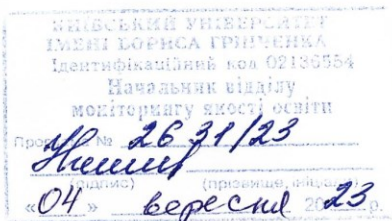 КИЇВСЬКИЙ УНІВЕРСИТЕТ
ІМЕНІ БОРИСА ГРІНЧЕНКА
Ідентифікаційний код 02136554
Начальник відділу
моніторингу якості освіти
№ 2631/23
(підпис) (прізвище, ініціали)
«04» вересня 2023 р.